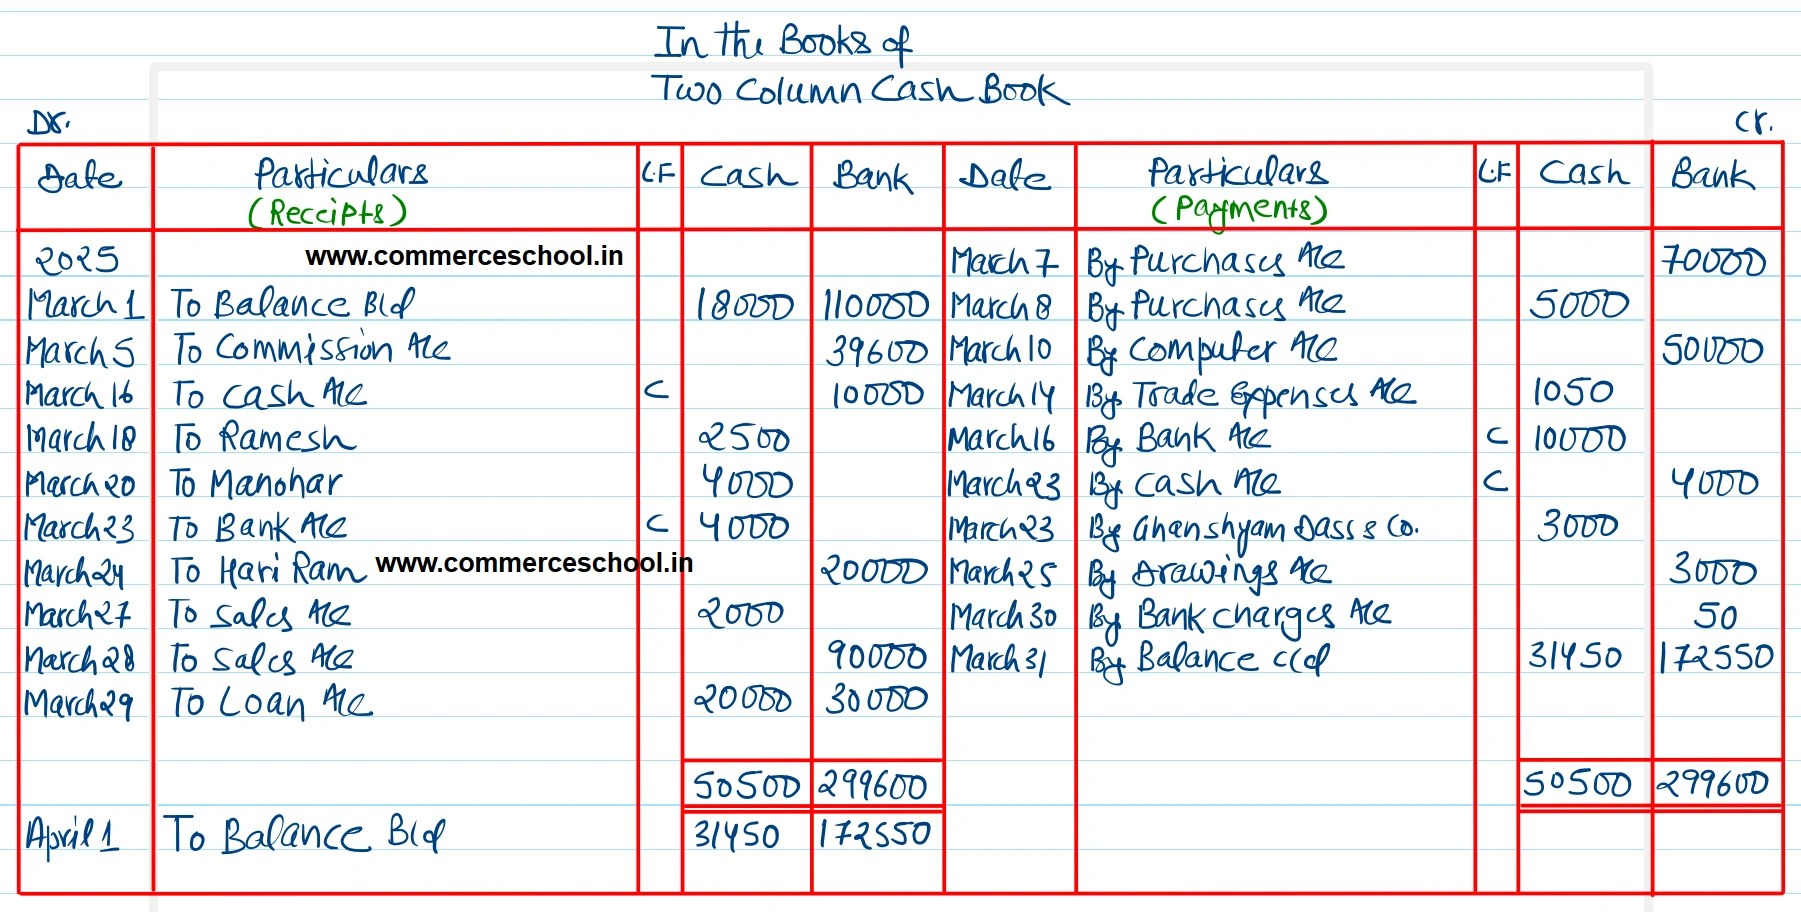 In the Books of
Two Column Cash Book
Dr. Cr.
Date Particulars L.F Cash Bank Date Particulars L.F Cash Bank
(Receipts) (Payments)
2025 www.commerceschool.in March 7 By Purchases A/c 70000
March 1 To Balance B/d 18000 110000 March 8 By Purchases A/c 5000
March 5 To Commission A/c 39600 March 10 By Computer A/c 50000
March 16 To Cash A/c C 10000 March 14 By Trade Expenses A/c 1050
March 18 To Ramesh 2500 March 16 By Bank A/c C 10000
March 20 To Manohar 4000 March 23 By Cash A/c C 4000
March 23 To Bank A/c C 4000 March 23 By Ghanshyam Dass & Co. 3000
March 24 To Hari Ram www.commerceschool.in 20000 March 25 By Drawings A/c 3000
March 27 To Sales A/c 2000 March 30 By Bank charges A/c 50
March 28 To Sales A/c 90000 March 31 By Balance c/d 31450 172550
March 29 To Loan A/c 20000 30000
50500 299600 50500 299600
April 1 To Balance B/d 31450 172550